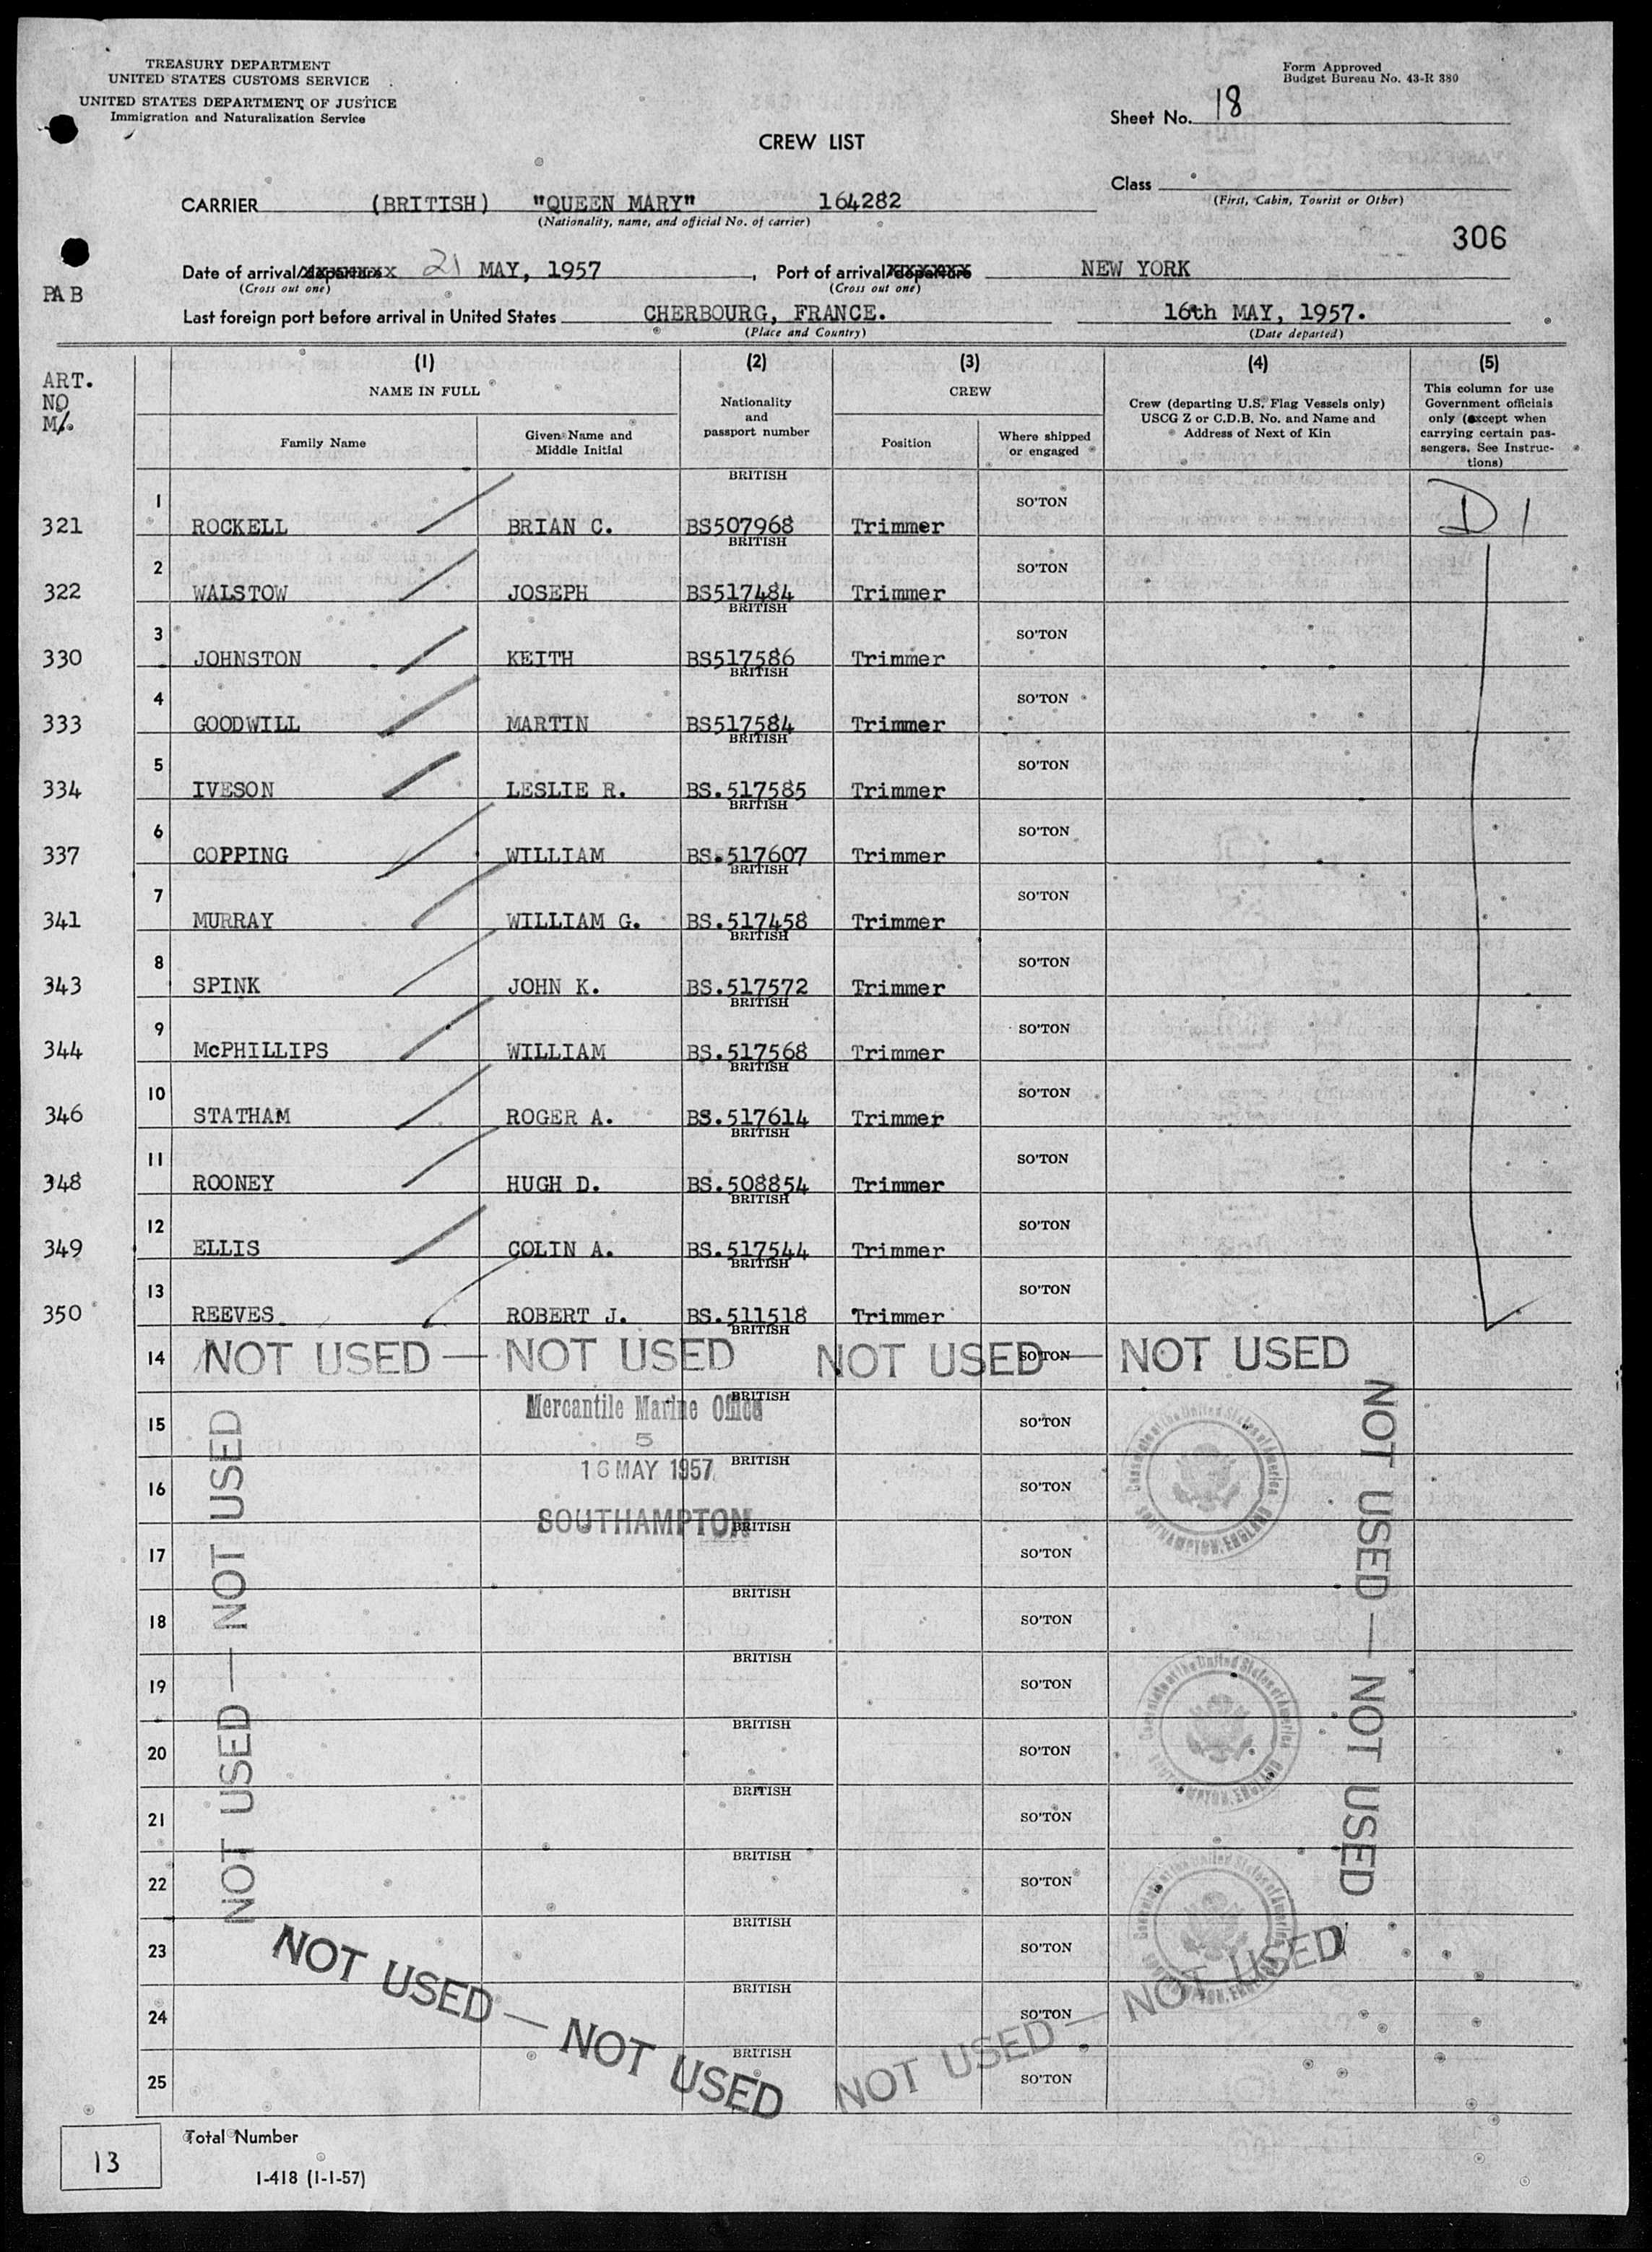 TREASURY DEPARTMENT
UNITED STATES CUSTOMS SERVICE
UNITED STATES DEPARTMENT OF JUSTICE
Immigration and Naturalization Service
Form Approved
Budget Bureau No. 43-R 380
Sheet No. 18
CREW LIST
Class
(First, Cabin, Tourist or Other)
CARRIER (BRITISH) "QUEEN MARY" 164282
(Nationality, name, and official No. of carrier)
306
Date of arrival/departure 21 MAY, 1957, Port of arrival/departure NEW YORK
(Cross out one) (Cross out one)
PAB
Last foreign port before arrival in United States CHERBOURG, FRANCE. 16th MAY, 1957.
(Place and Country) (Date departed)
ART.
NO
M/.
(1) (2) (3) (4) (5)
NAME IN FULL
Family Name
Given Name and
Middle Initial
Nationality
and
passport number
CREW
Position
Where shipped
or engaged
Crew (departing U.S. Flag Vessels only)
USCG Z or C.D.B. No. and Name and
Address of Next of Kin
This column for use
Government officials
only (except when
carrying certain pas-
sengers. See Instruc-
tions)
BRITISH
321 1 ROCKELL BRIAN C. BS507968 Trimmer SO'TON D 1
BRITISH
322 2 WALSTOW JOSEPH BS517484 Trimmer SO'TON
BRITISH
330 3 JOHNSTON KEITH BS517586 Trimmer SO'TON
BRITISH
333 4 GOODWILL MARTIN BS517584 Trimmer SO'TON
BRITISH
334 5 IVESON LESLIE R. BS.517585 Trimmer SO'TON
BRITISH
337 6 COPPING WILLIAM BS.517607 Trimmer SO'TON
BRITISH
341 7 MURRAY WILLIAM G. BS.517458 Trimmer SO'TON
BRITISH
343 8 SPINK JOHN K. BS.517572 Trimmer SO'TON
BRITISH
344 9 McPHILLIPS WILLIAM BS.517568 Trimmer SO'TON
BRITISH
346 10 STATHAM ROGER A. BS.517614 Trimmer SO'TON
BRITISH
348 11 ROONEY HUGH D. BS.508854 Trimmer SO'TON
BRITISH
349 12 ELLIS COLIN A. BS.517544 Trimmer SO'TON
BRITISH
350 13 REEVES ROBERT J. BS.511518 Trimmer SO'TON
BRITISH
14 NOT USED — NOT USED NOT USED — NOT USED SO'TON
BRITISH
15 Mercantile Marine Office SO'TON
5
BRITISH
16 16 MAY 1957 SO'TON
SOUTHAMPTON
BRITISH
17 SO'TON
BRITISH
18 SO'TON
BRITISH
19 SO'TON
BRITISH
20 SO'TON
BRITISH
21 SO'TON
BRITISH
22 SO'TON
BRITISH
23 SO'TON
BRITISH
24 SO'TON
BRITISH
25 SO'TON
NOT USED — NOT USED — NOT USED
NOT USED — NOT USED
NOT USED — NOT USED
NOT USED — NOT USED
Consulate of the United States of America
SOUTHAMPTON, ENGLAND
Consulate of the United States of America
SOUTHAMPTON, ENGLAND
Consulate of the United States of America
SOUTHAMPTON, ENGLAND
13 Total Number
I-418 (1-1-57)